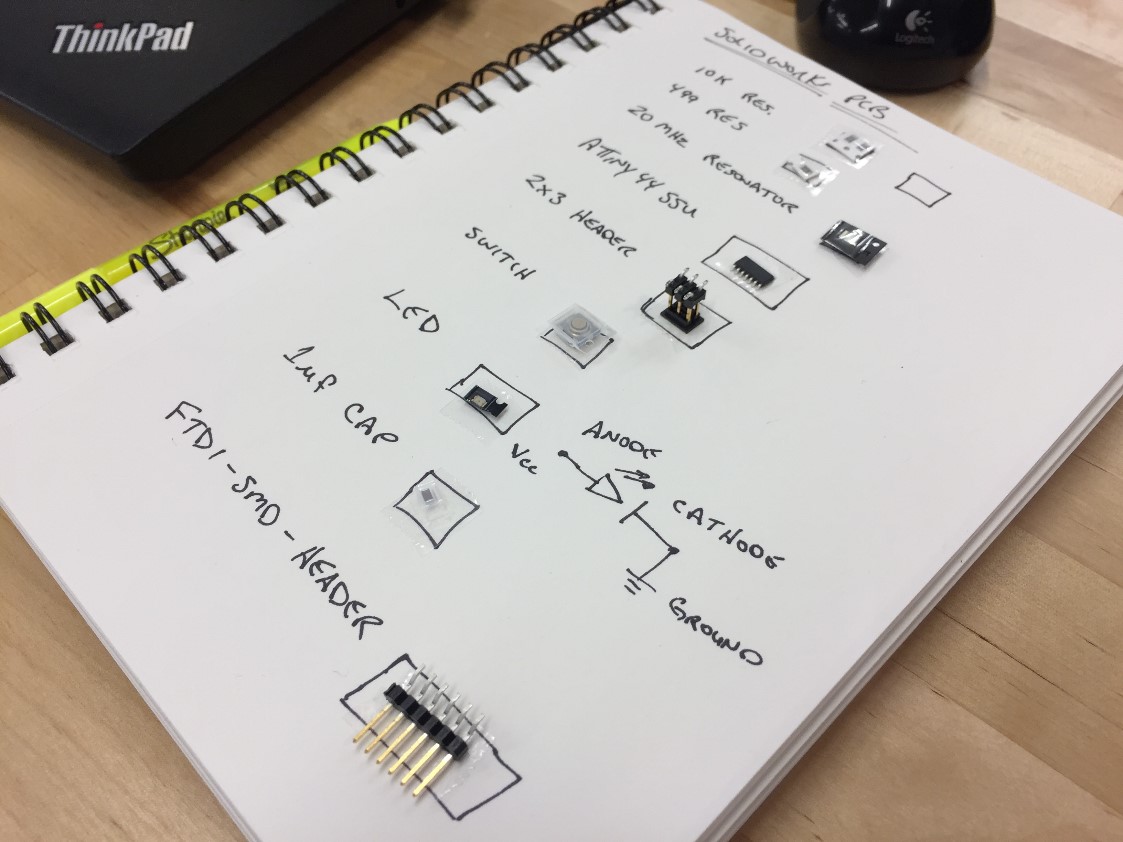 ThinkPad
Logitech
Sharpie
SOLIDWORKS PCB
10K RES.
499 RES
20 MHz RESONATOR
ATTiny 44 SSU
2x3 HEADER
SWITCH
LED
1uf CAP
FTDI-SMD-HEADER
Vcc
ANODE
CATHODE
GROUND